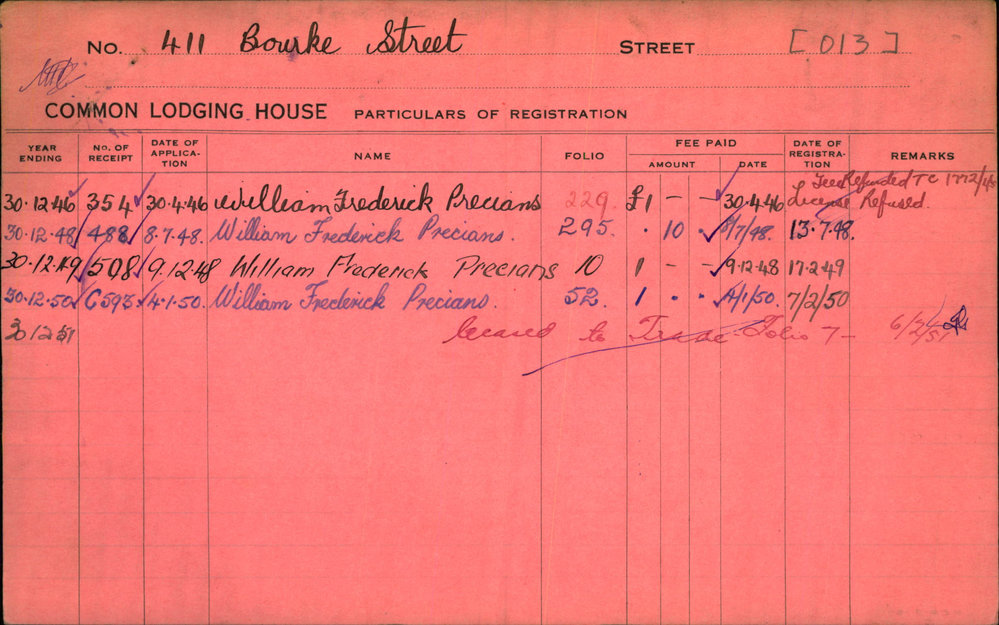 No. 411 Bourke Street STREET [013]
COMMON LODGING HOUSE PARTICULARS OF REGISTRATION
YEAR ENDING No. OF RECEIPT DATE OF APPLICA-TION NAME FOLIO FEE PAID AMOUNT DATE DATE OF REGISTRA-TION REMARKS
Fee Refunded TC 1772/
30.12.46 354 30.4.46 William Frederick Precians 229. £1 – – 30.4.46 License Refused.
30.12.48 488 8.7.48. William Frederick Precians. 295. . 10 . 8/7/48. 13.7.48.
30.12.49 508 9.12.48 William Frederick Precians 10 1 – – 9.12.48 17.2.49
30.12.50 C593 4.1.50. William Frederick Precians. 52. 1 . . 4/1/50. 7/2/50
30 12 51 to Folio 7 – 6/2/51